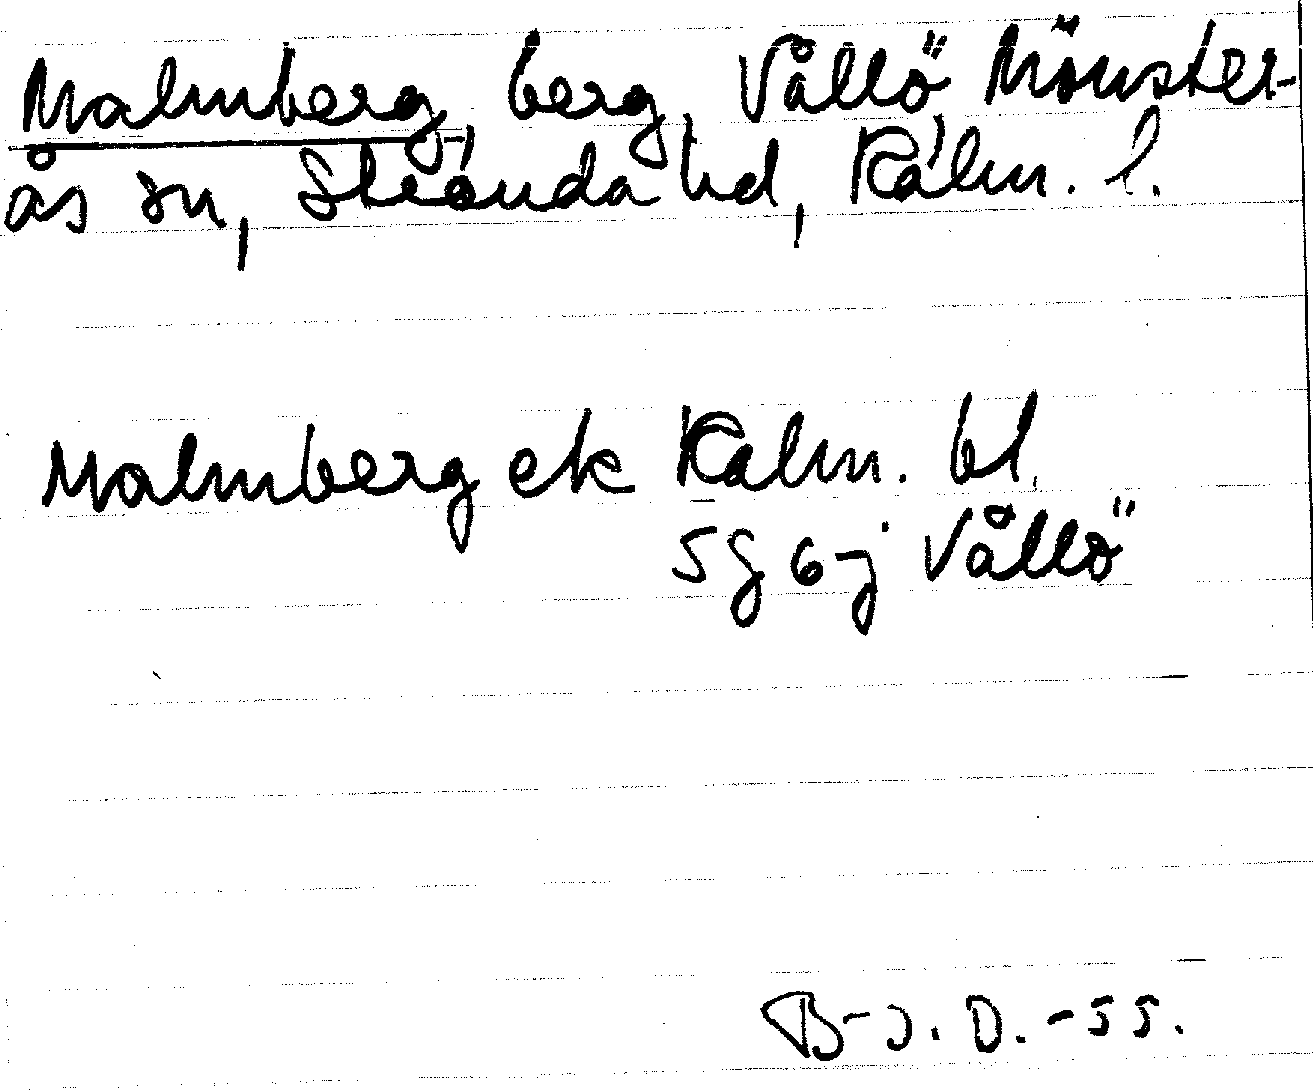 Malmberg, berg, Vållö Mönster-
ås sn, Stranda hd, Kalm. l.
Malmberg ek Kalm. bl.
5g 6-j Vållö
B-J. D. -55.